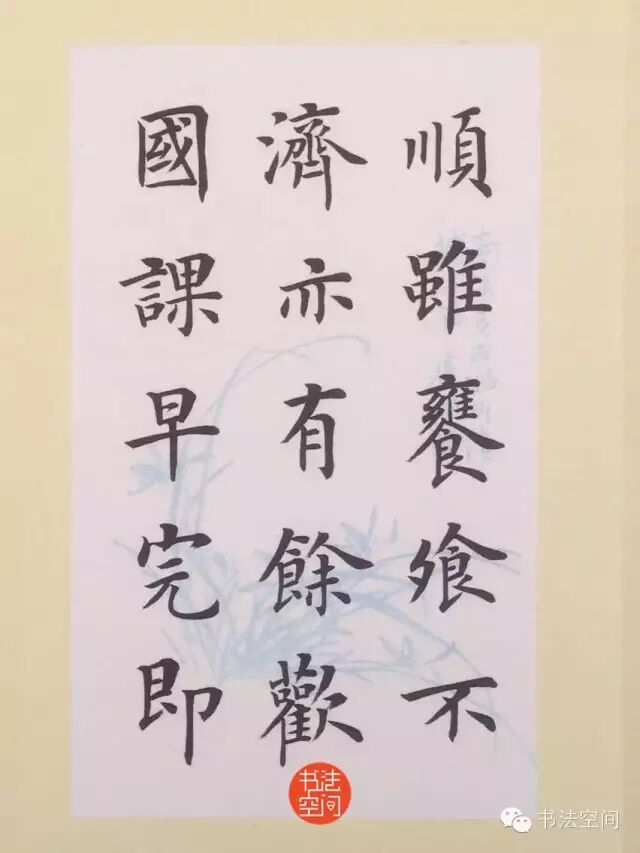 順雖饔飧不
濟亦有餘歡
國課早完即
书法
空间
书法空间